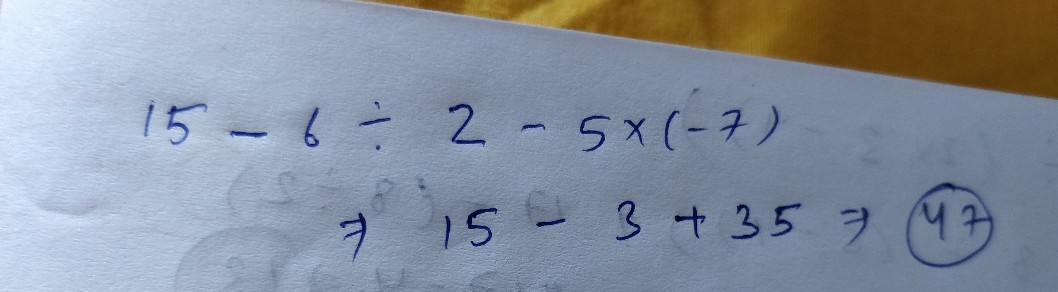 15 - 6 ÷ 2 - 5 × (-7)
⇒ 15 - 3 + 35 ⇒ 47